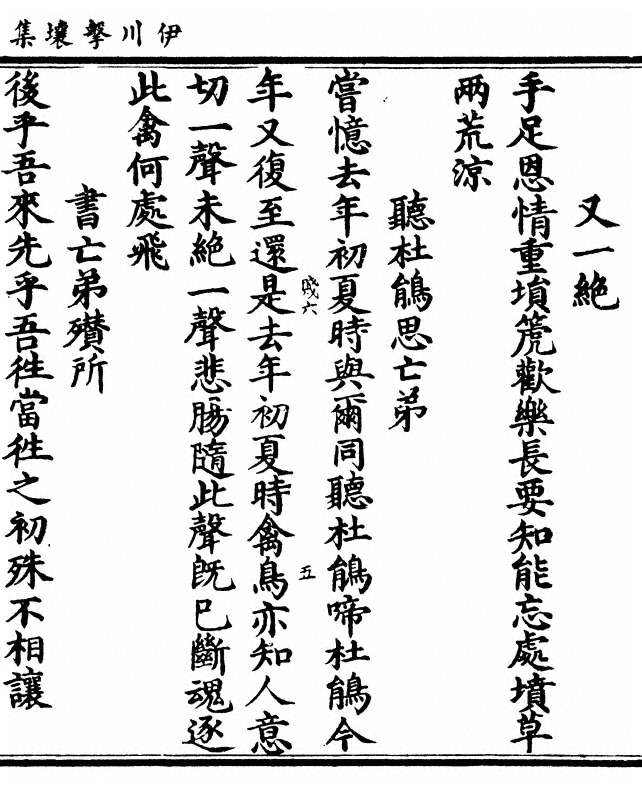 伊川擊壤集
又一絶
手足恩情重塤箎歡樂長要知能忘處墳草
兩荒涼
聽杜鵑思亡弟
嘗憶去年初夏時與爾同聽杜鵑啼杜鵑今
年又復至還是去年初夏時禽鳥亦知人意
切一聲未絶一聲悲腸隨此聲旣已斷魂逐
此禽何處飛
書亡弟殯所
後乎吾來先乎吾徃當徃之初殊不相讓
五